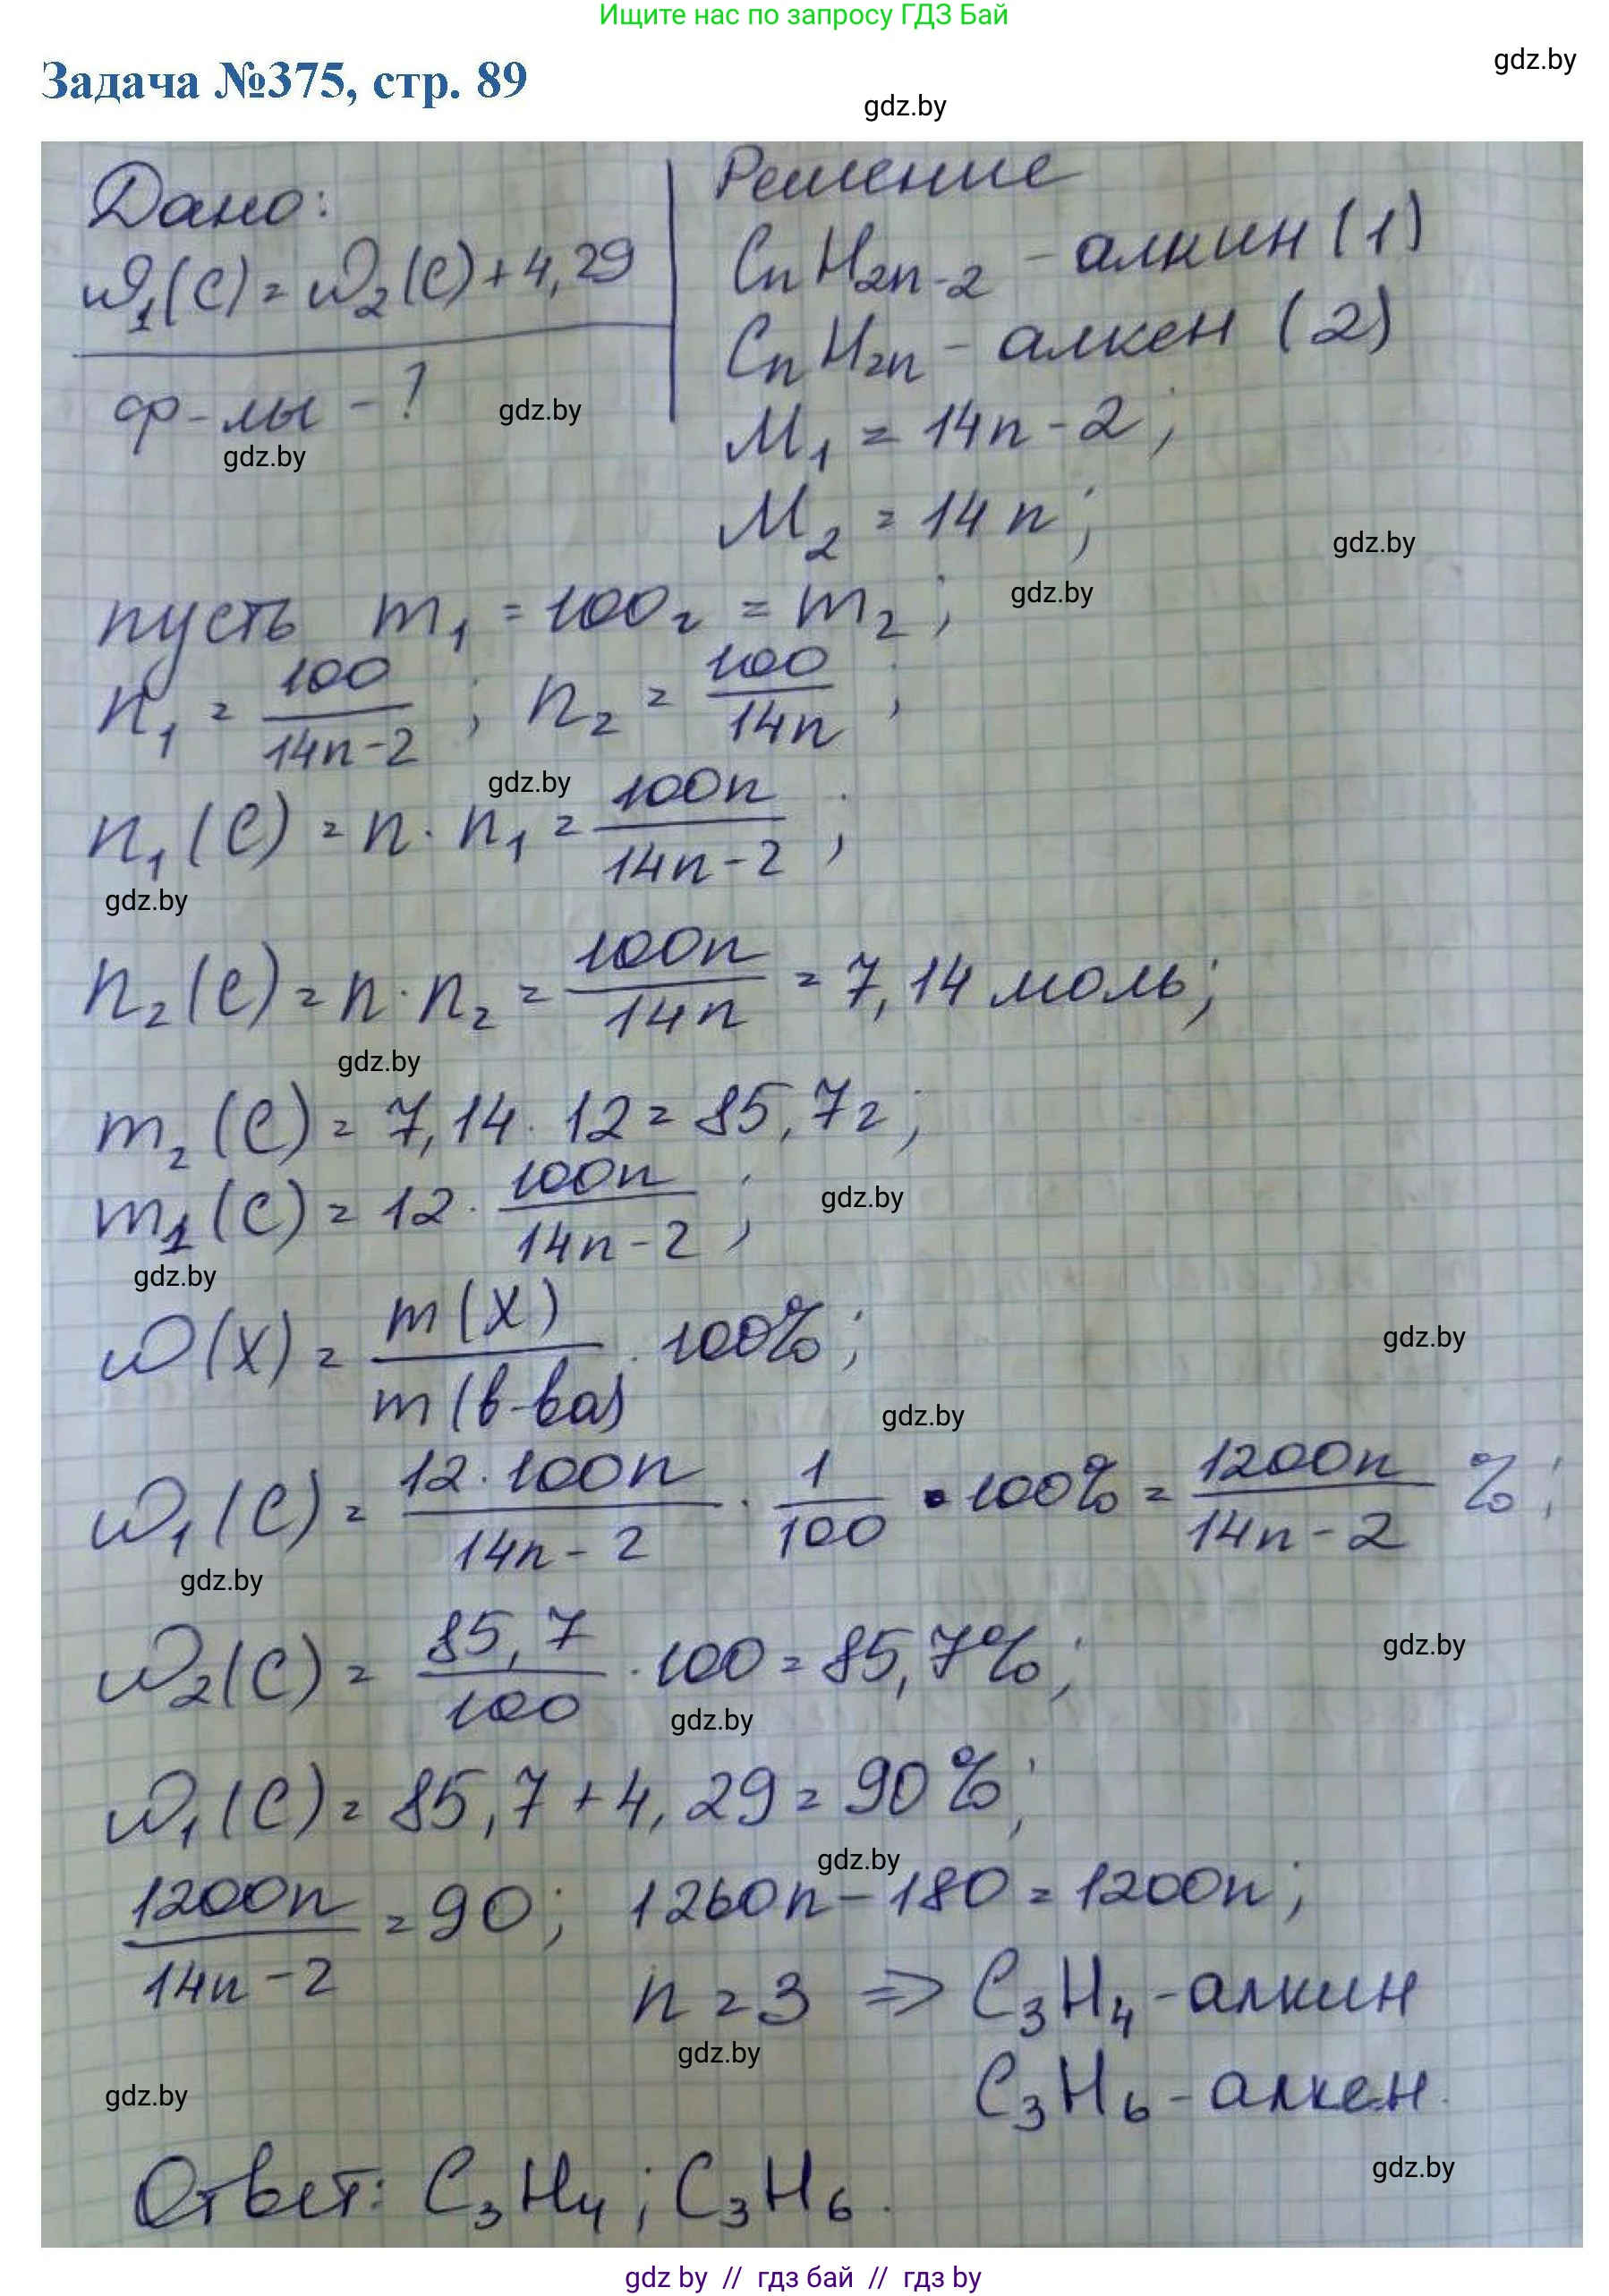 Ищите нас по запросу ГДЗ Бай
gdz.by
Задача №375, стр. 89
gdz.by
Дано:
ω₁(C) = ω₂(C) + 4,29
ф-лы - ?
gdz.by
gdz.by
Решение
CnH2n-2 - алкин (1)
CnH2n - алкен (2)
M₁ = 14n - 2;
M₂ = 14n;
gdz.by
gdz.by
пусть m₁ = 100г = m₂;
n₁ = 100/(14n-2); n₂ = 100/14n;
gdz.by
n₁(C) = n · n₁ = 100n/(14n-2);
gdz.by
n₂(C) = n · n₂ = 100n/14n = 7,14 моль;
gdz.by
m₂(C) = 7,14 · 12 = 85,7г;
m₁(C) = 12 · 100n/(14n-2);
gdz.by
gdz.by
ω(X) = m(X)/m(в-ва) · 100%;
gdz.by
gdz.by
ω₁(C) = 12·100n/(14n-2) · 1/100 · 100% = 1200n/(14n-2) %;
gdz.by
ω₂(C) = 85,7/100 · 100 = 85,7%;
gdz.by
gdz.by
ω₁(C) = 85,7 + 4,29 = 90%;
gdz.by
1200n/(14n-2) = 90; 1260n - 180 = 1200n;
n = 3 => C₃H₄ - алкин
gdz.by
C₃H₆ - алкен.
gdz.by
gdz.by
Ответ: C₃H₄; C₃H₆.
gdz by // гдз бай // гдз by